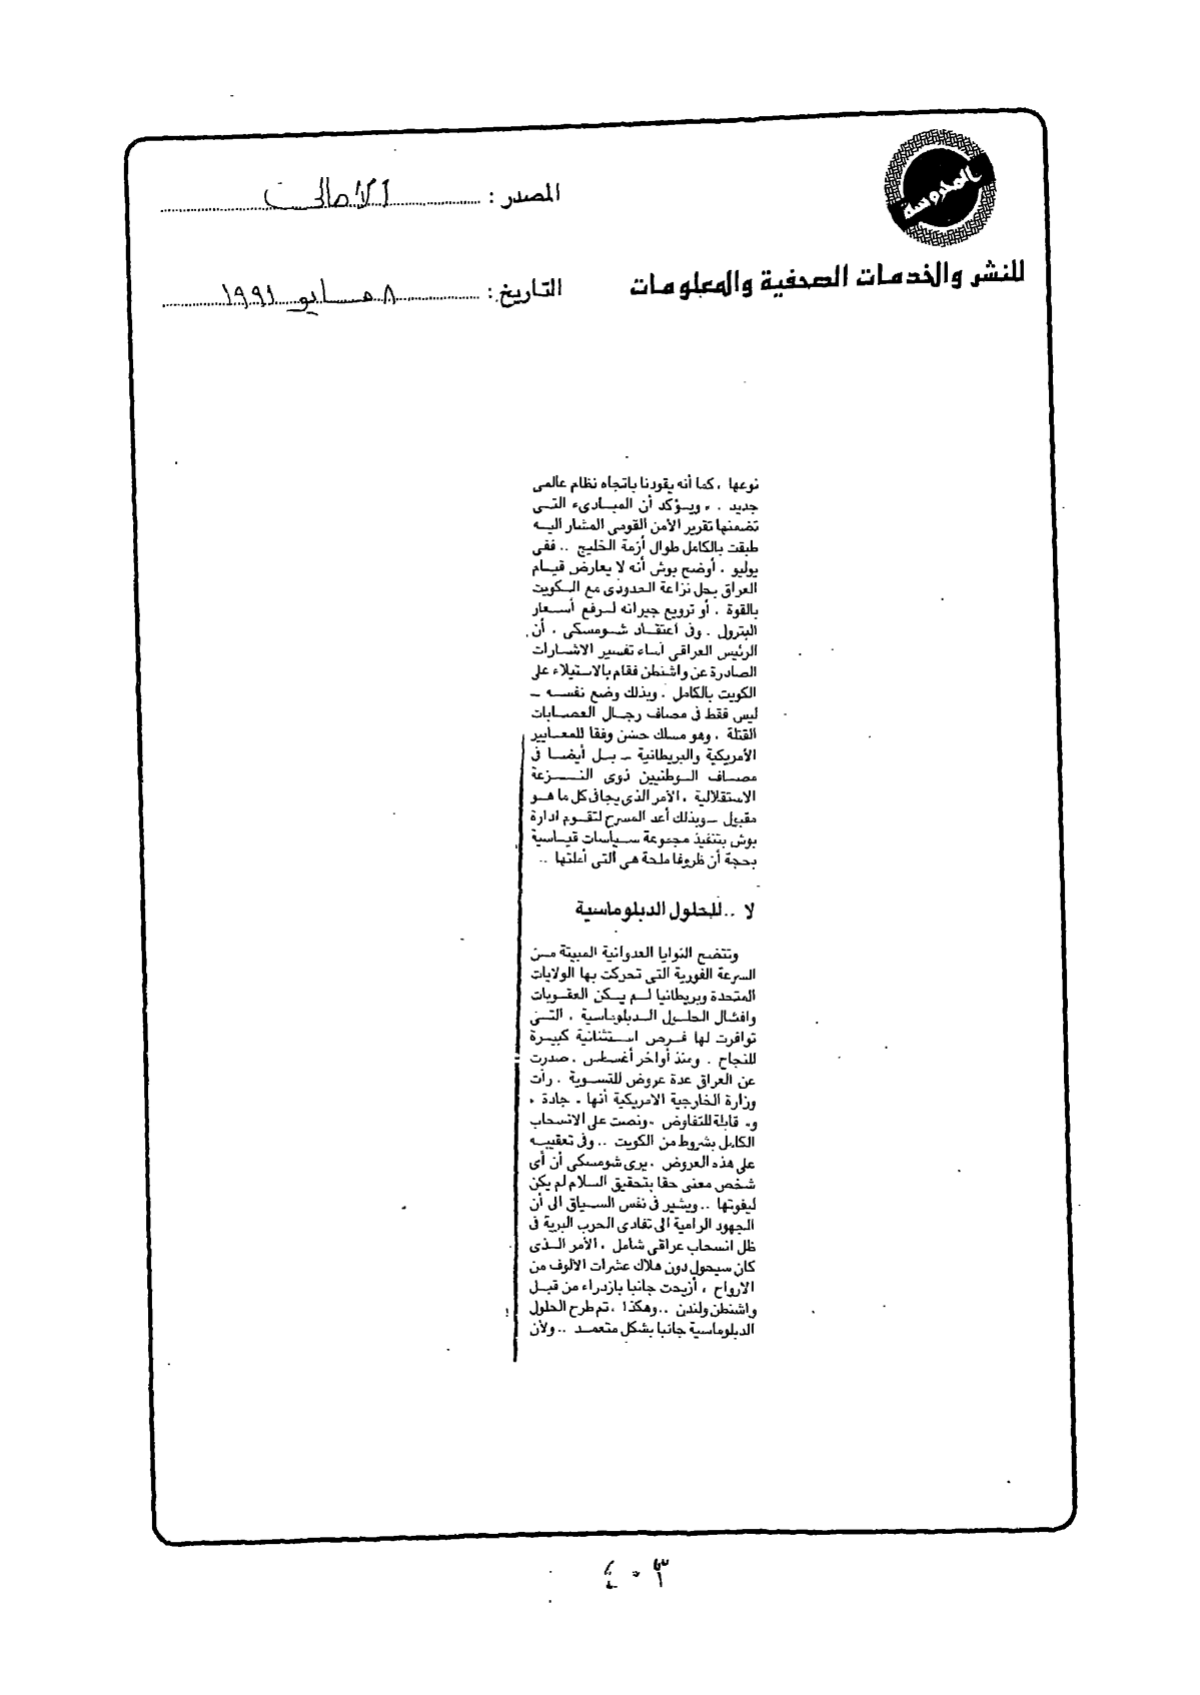 المحروسة
للنشر والخدمات الصحفية والمعلومات
المصدر : الأهالى
التاريخ : ٨ مايو ١٩٩١
نوعها ، كما أنه يقودنا باتجاه نظام عالمى
جديد . ، ويؤكد أن المبادىء التى
تضمنها تقرير الأمن القومى المشار اليه
طبقت بالكامل طوال أزمة الخليج .. ففى
يوليو ، أوضح بوش أنه لا يعارض قيام
العراق بحل نزاعة الحدودى مع الكويت
بالقوة ، أو ترويع جيرانه لرفع أسعار
البترول . وفى اعتقاد شومسكى ، أن
الرئيس العراقى اساء تفسير الاشارات
الصادرة عن واشنطن فقام بالاستيلاء على
الكويت بالكامل . وبذلك وضع نفسه ــ
ليس فقط فى مصاف رجال العصابات
القتلة ، وهو مسلك حسن وفقا للمعايير
الأمريكية والبريطانية ــ بل أيضا فى
مصاف الوطنيين ذوى النزعة
الاستقلالية ، الأمر الذى يجافى كل ما هو
مقبول ــ وبذلك أعد المسرح لتقوم ادارة
بوش بتنفيذ مجموعة سياسات قياسية
بحجة أن ظروفا ملحة هى التى أملتها ..
لا .. للحلول الدبلوماسية
وتتضح النوايا العدوانية المبيتة من
السرعة الفورية التى تحركت بها الولايات
المتحدة وبريطانيا لم يكن العقوبات
وافشال الحلول الدبلوماسية ، التى
توافرت لها فرص استثنائية كبيرة
للنجاح . ومنذ أواخر أغسطس ، صدرت
عن العراق عدة عروض للتسوية . رأت
وزارة الخارجية الامريكية أنها ـ جادة ،
و ـ قابلة للتفاوض ـ ونصت على الانسحاب
الكامل بشروط من الكويت .. وفى تعقيبه
على هذه العروض ، يرى شومسكى أن أى
شخص معنى حقا بتحقيق السلام لم يكن
ليفوتها .. ويشير فى نفس السياق الى أن
الجهود الرامية الى تفادى الحرب البرية فى
ظل انسحاب عراقى شامل ، الأمر الذى
كان سيحول دون هلاك عشرات الالوف من
الارواح ، أزيحت جانبا بازدراء من قبل
واشنطن ولندن .. وهكذا ، تم طرح الحلول
الدبلوماسية جانبا بشكل متعمد .. ولأن
٤٠٣